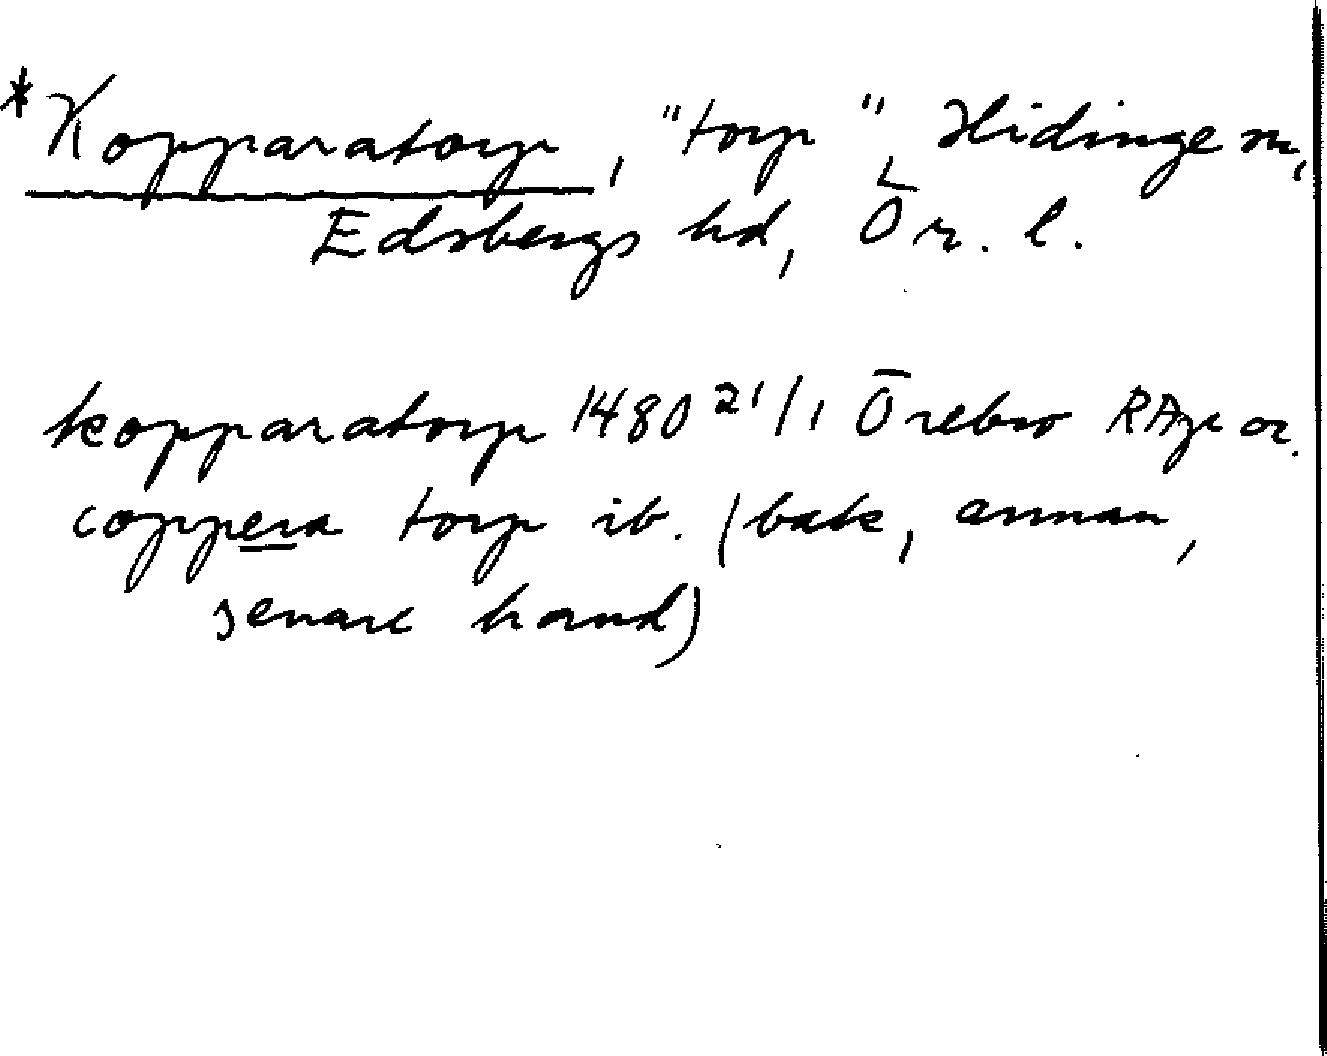 *Kopparatorp, "torp", Hidinge sn,
Edsbergs hd, Ör. l.
kopparatorp 1480 21/1 Örebro RAp or.
coppera torp ib. (bak, annan,
senare hand)